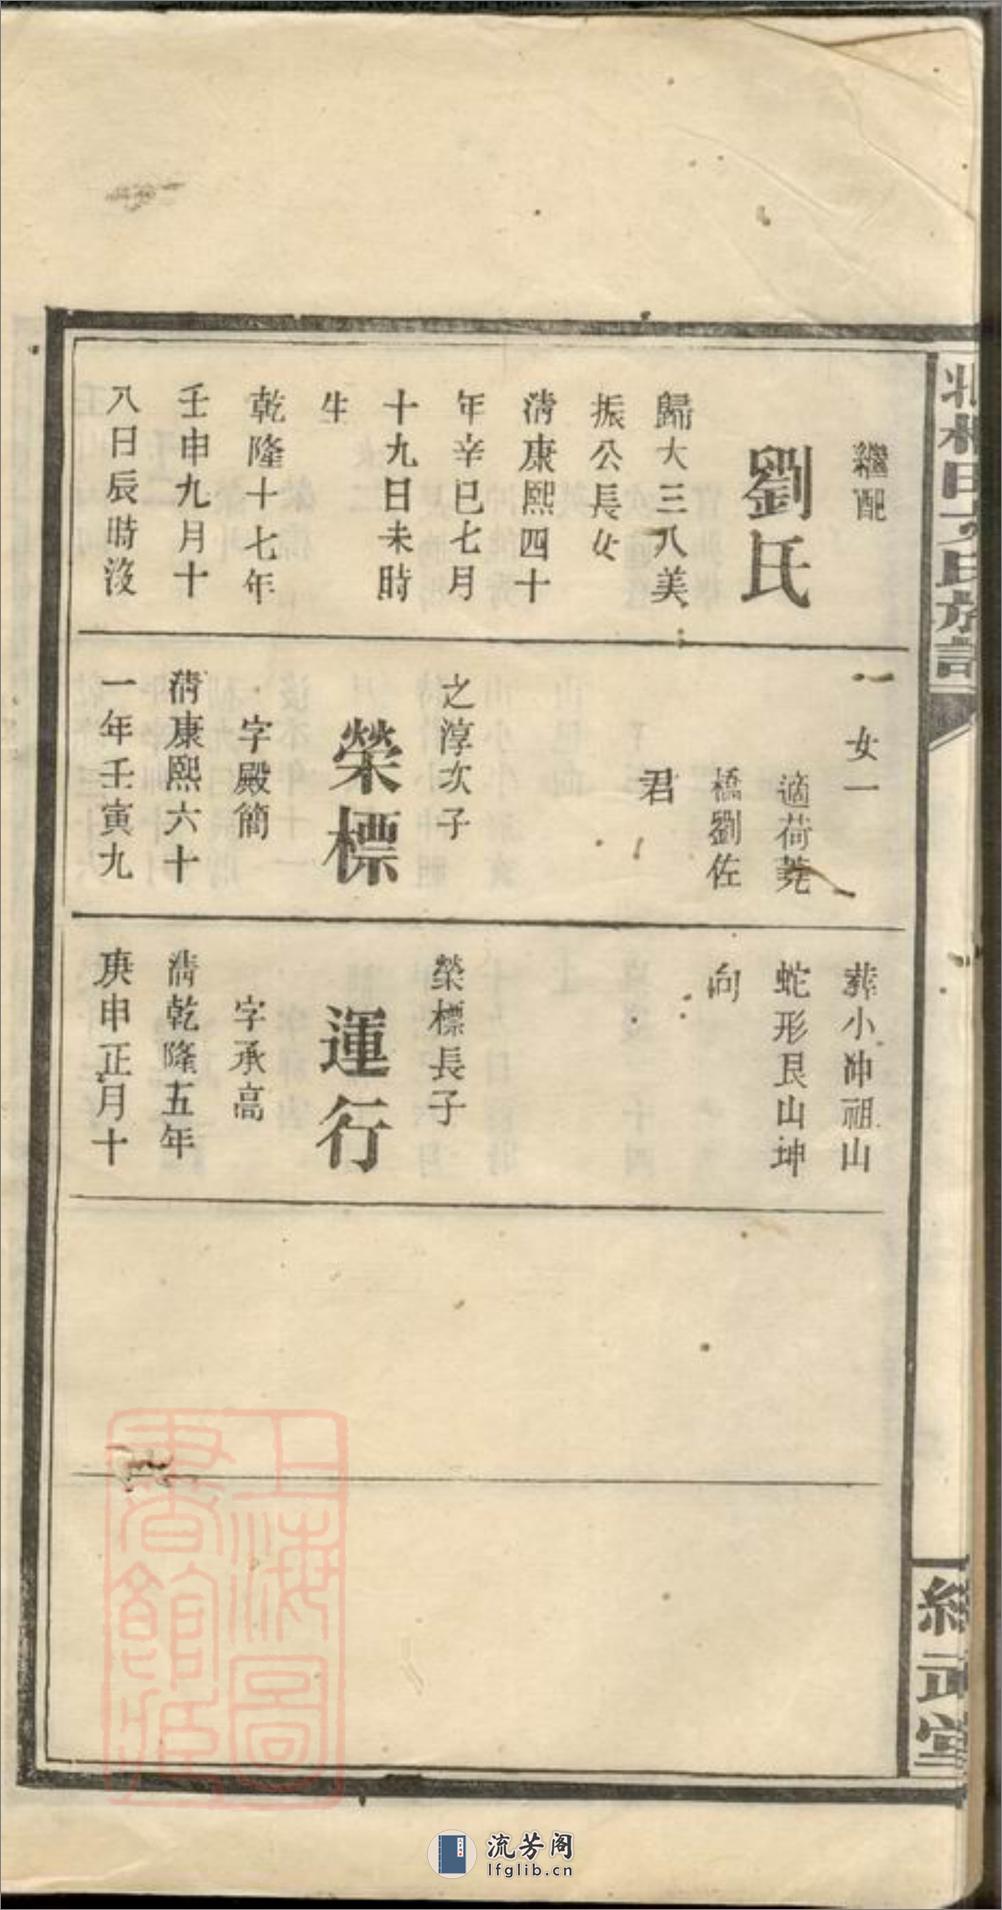 繼配
劉氏
歸大三八美
振公長女
清康熙四十
年辛巳七月
十九日未時
生
乾隆十七年
壬申九月十
八日辰時沒
一女一
適荷蕘
橋劉佐
君
之淳次子
榮標
字殿簡
清康熙六十
一年壬寅九
葬小冲祖山
蛇形艮山坤
向
榮標長子
運行
字承高
清乾隆五年
庚申正月十
氏族譜
堂
上海圖
書館
流芳阁
lfglib.cn